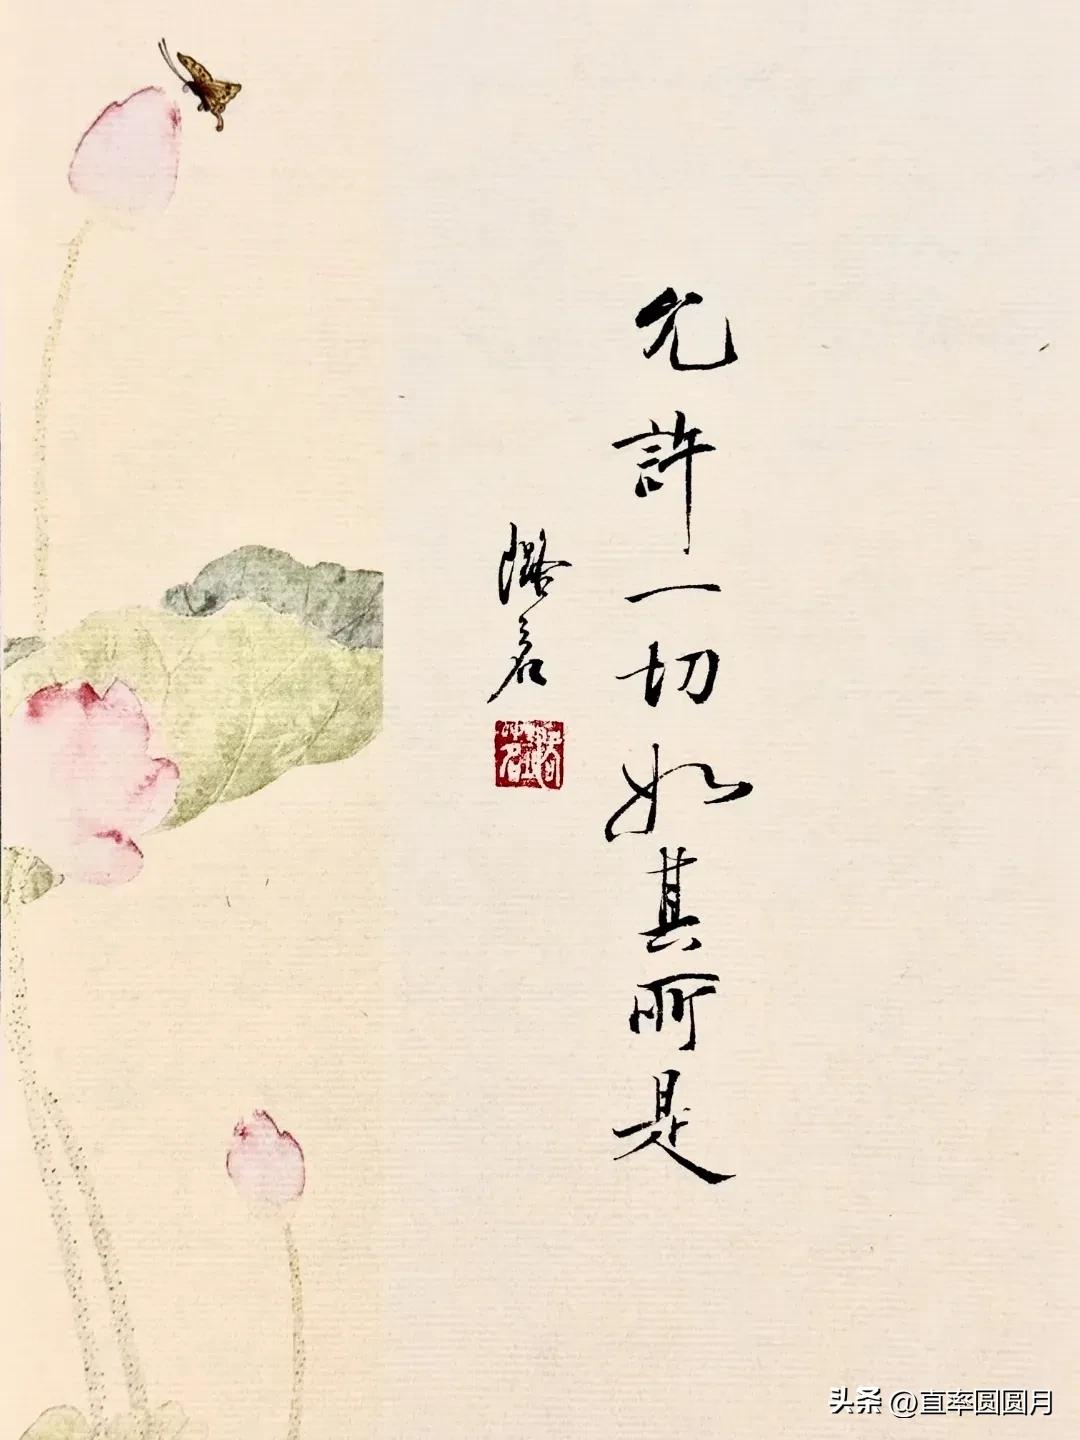 允許一切如其所是
头条 @直率圆圆月